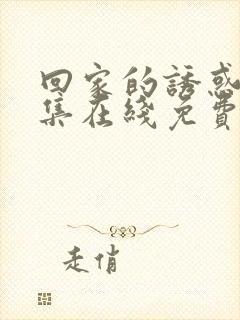 回家的誘惑
集在綫免費
走俏